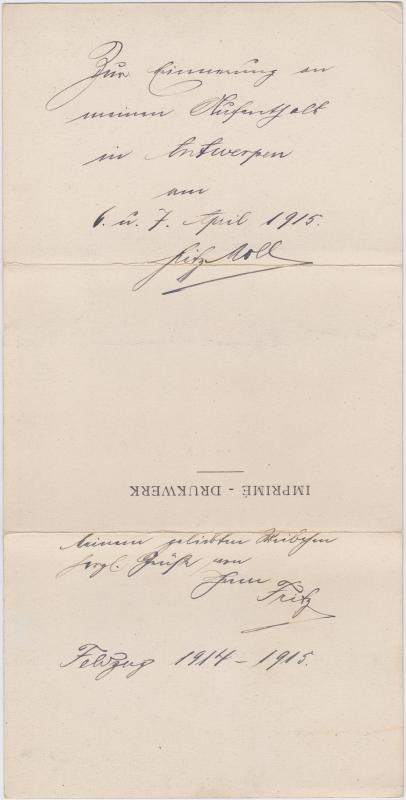 Zur Erinnerung an
meinen Aufenthalt
in Antwerpen
am
6. u. 7. April 1915.
Fritz Moll
IMPRIMÉ - DRUKWERK
Meinem geliebten Weibchen
herzl. Grüße von
Ihrem
Fritz
Feldzug 1914-1915.